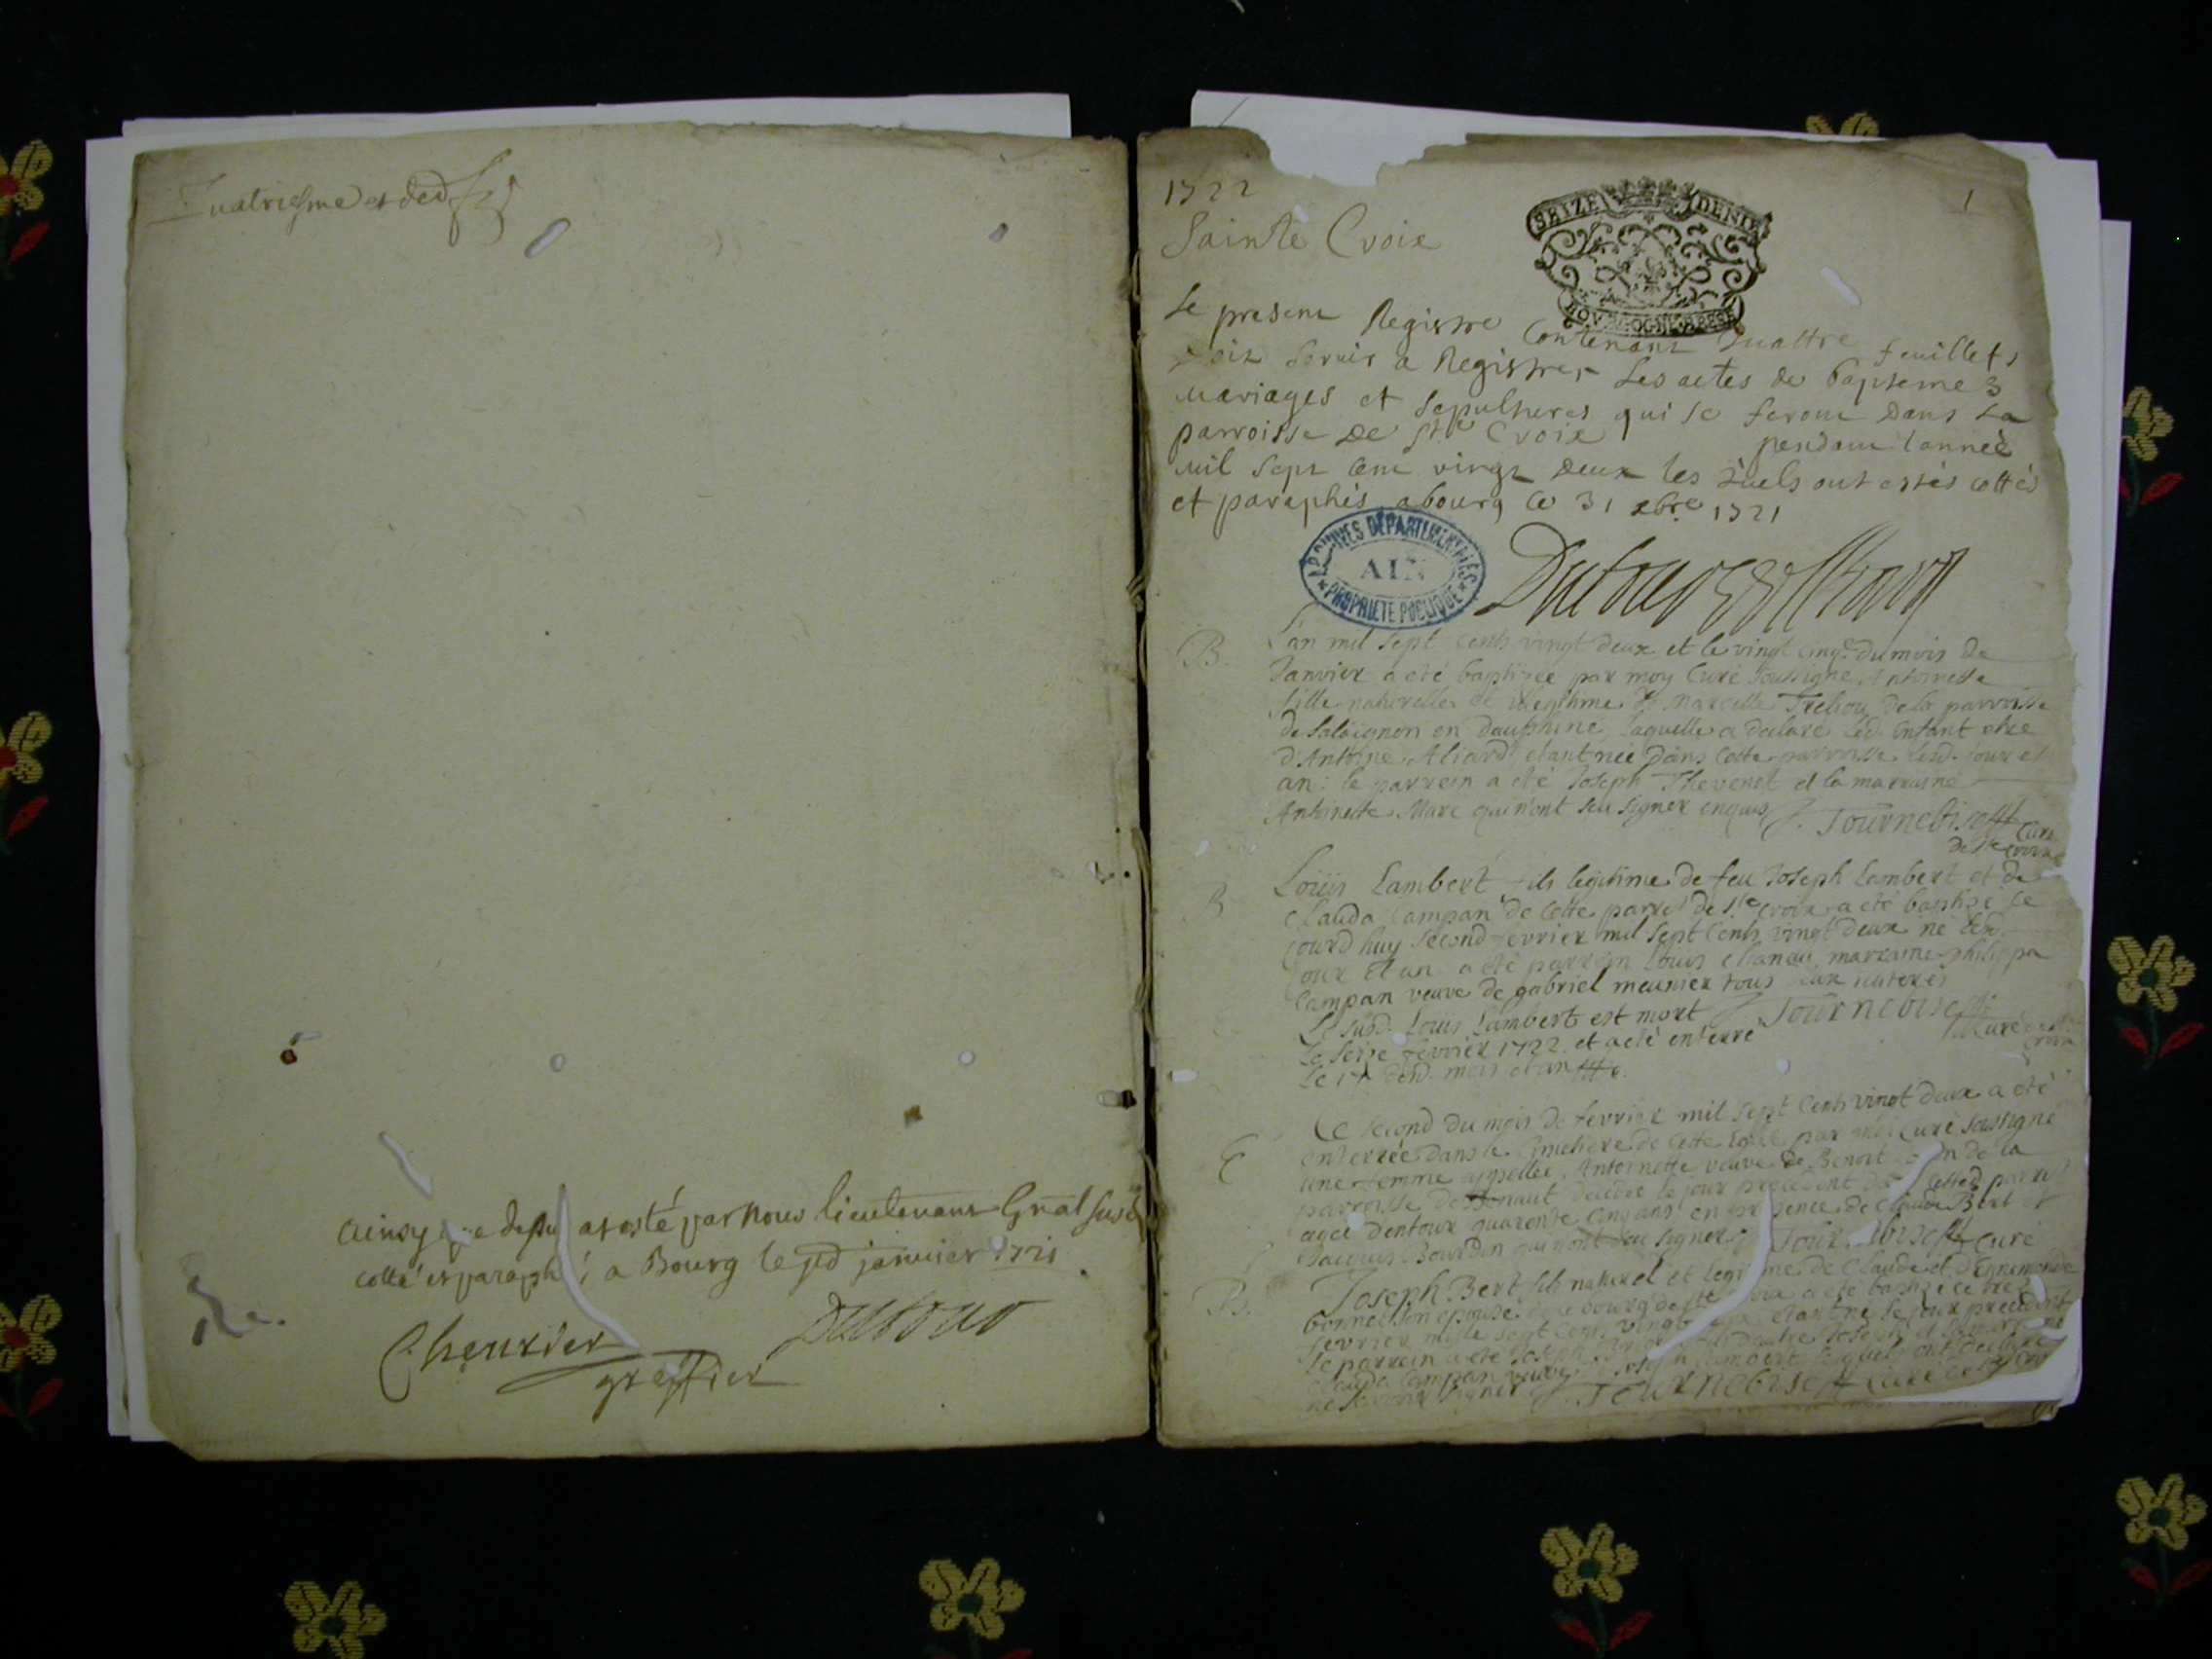 quatriesme et der
ainsy que dessus a esté par nous lieutenant Gnal susd
cotté et paraphé a Bourg le pd janvier 1721
Cheurier
greffier
Dubour
1722
1
Sainte Croix
SEIZE DENIE
BOVRGOGNE BRESE
Le present Registre Contenant quattre feuillets
doit servir a Registrer Les actes de baptemes
mariages et sepultures qui se feront dans La
parroisse De Ste Croix pendant lannèe
mil sept cent vingt deux les quels ont estés cottés
et paraphés a bourg ce 31 xbre 1721
ARCHIVES DÉPARTEMENTALES
AIN
PROPRIETE PUBLIQUE
B. L'an mil sept cents vingt deux et le vingt cinq.e du mois de
Janvier a eté baptizée par moy Curé soussigné Antoinette
fille naturelle et illegitime de Marcelle de la parroisse
de Salaignon en dauphine, laquelle a declaré led. enfant etre
d'Antoine Aliard, etant née dans cette parroisse lesd. jour et
an: le parrein a eté Joseph Thevenet et la marraine
Antoinette Mare qui n'ont sçu signer enquis J. Tournebise
Curé
de Ste Croix
B Loüis Lambert fils legitime de feu Joseph Lambert et de
Clauda Campan de cette parr. de Ste Croix a eté baptizé ce
jourd'huy second fevrier mil sept cents vingt deux né led.
jour et an a eté parrein Louis marraine philippa
Campan veuve de gabriel meunier tous deux illiterés
Le susd. Loüis Lambert est mort J. Tournebise
Le seize fevrier 1722 et a eté enterré Curé
Le 17 desd. mois et an
E Ce second du mois de fevrier mil sept cents vingt deux a eté
enterrée dans le Cimetiere de cette Eglise par moi Curé soussigné
une femme appellée Antoinette veuve de Benoit de la
parroisse de decedée le jour precedent dans cetted. parr.
agée d'entour quarente cinq ans en presence de Claude Bert et
Jacques Bourdin qui n'ont sçu signer J. Tournebise Curé
B. Joseph Bert fils naturel et legitime de Claude et
bonnet son epouse du bourg de Ste Croix a eté baptizé ce
fevrier mille sept cents vingt deux etant né le jour precedent
le parrein a eté Joseph
Clauda Campan veuve de Joseph Lambert lequels ont declaré
ne sçavoir signer J. Tournebise Curé de Ste Croix